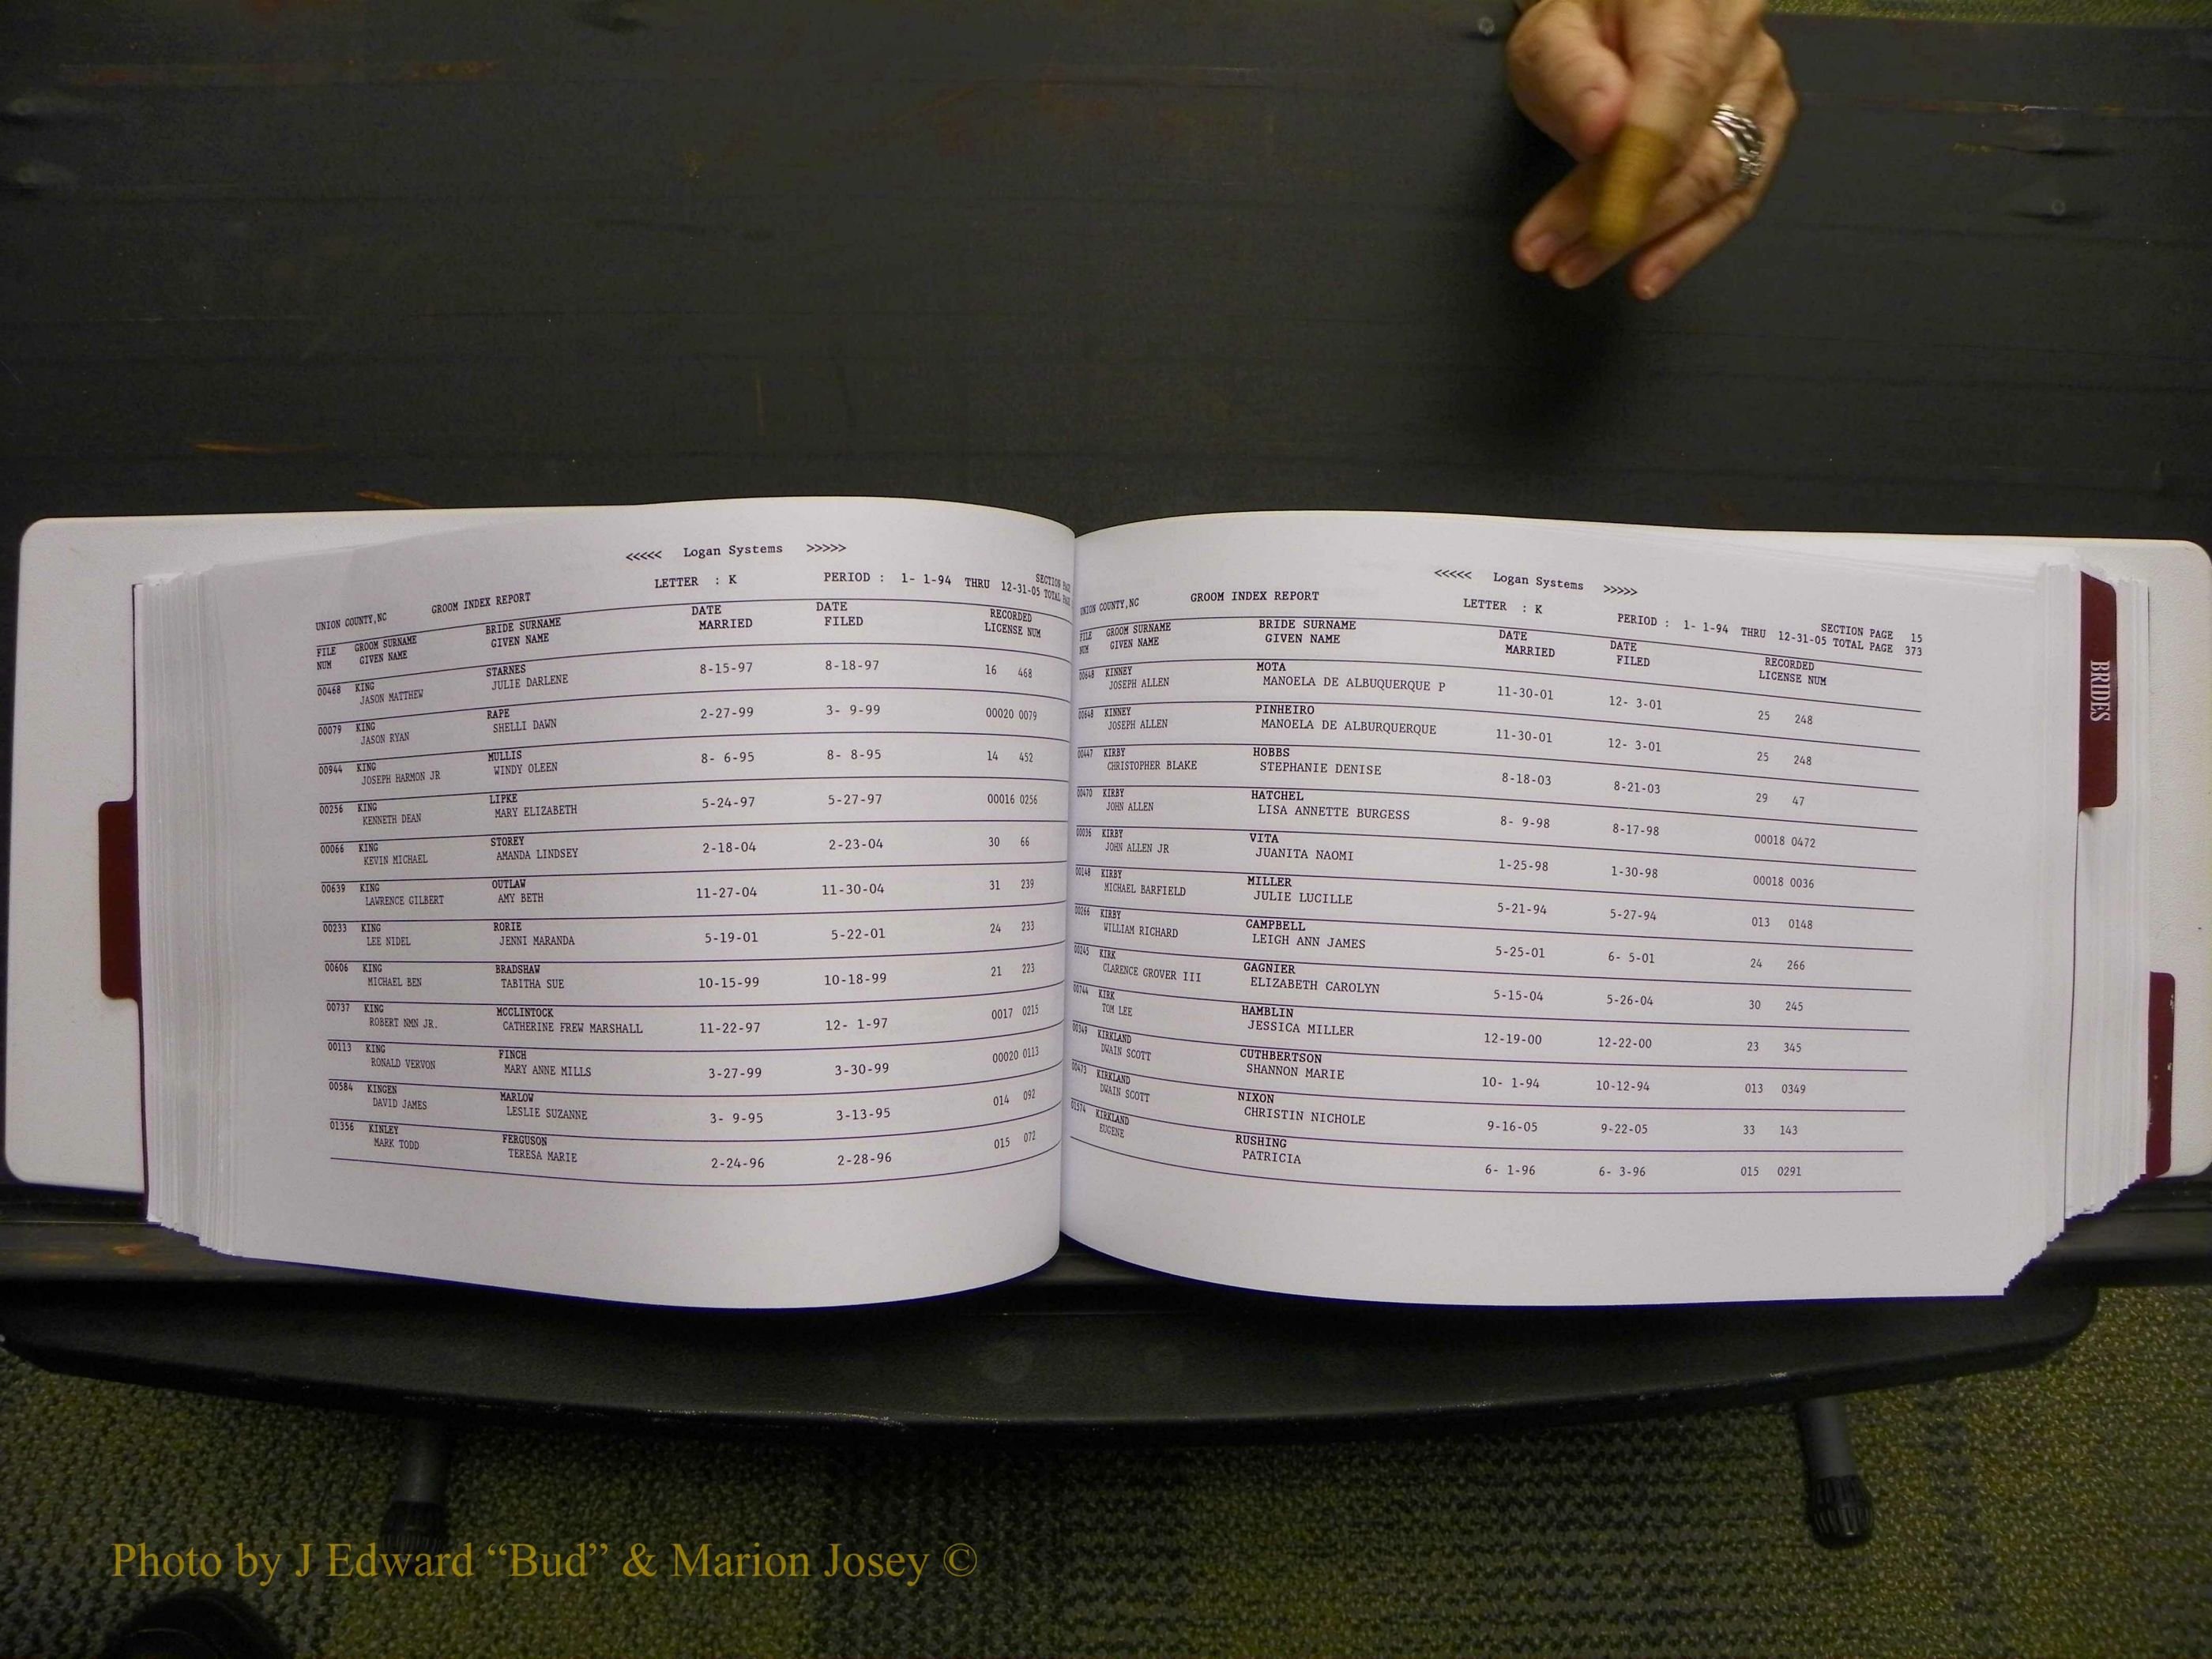 <<<<< Logan Systems >>>>>
UNION COUNTY,NC GROOM INDEX REPORT LETTER : K PERIOD : 1- 1-94 THRU 12-31-05
SECTION
TOTAL
FILE GROOM SURNAME BRIDE SURNAME DATE DATE RECORDED
NUM GIVEN NAME GIVEN NAME MARRIED FILED LICENSE NUM
00468 KING STARNES 8-15-97 8-18-97 16 468
JASON MATTHEW JULIE DARLENE
00079 KING RAPE 2-27-99 3- 9-99 00020 0079
JASON RYAN SHELLI DAWN
00944 KING MULLIS 8- 6-95 8- 8-95 14 452
JOSEPH HARMON JR WINDY OLEEN
00256 KING LIPKE 5-24-97 5-27-97 00016 0256
KENNETH DEAN MARY ELIZABETH
00066 KING STOREY 2-18-04 2-23-04 30 66
KEVIN MICHAEL AMANDA LINDSEY
00639 KING OUTLAW 11-27-04 11-30-04 31 239
LAWRENCE GILBERT AMY BETH
00233 KING RORIE 5-19-01 5-22-01 24 233
LEE NIDEL JENNI MARANDA
00606 KING BRADSHAW 10-15-99 10-18-99 21 223
MICHAEL BEN TABITHA SUE
00737 KING MCCLINTOCK 11-22-97 12- 1-97 0017 0215
ROBERT NMN JR. CATHERINE FREW MARSHALL
00113 KING FINCH 3-27-99 3-30-99 00020 0113
RONALD VERVON MARY ANNE MILLS
00584 KINGEN MARLOW 3- 9-95 3-13-95 014 092
DAVID JAMES LESLIE SUZANNE
01356 KINLEY FERGUSON 2-24-96 2-28-96 015 072
MARK TODD TERESA MARIE
<<<<< Logan Systems >>>>>
UNION COUNTY,NC GROOM INDEX REPORT LETTER : K PERIOD : 1- 1-94 THRU 12-31-05
SECTION PAGE 15
TOTAL PAGE 373
FILE GROOM SURNAME BRIDE SURNAME DATE DATE RECORDED
NUM GIVEN NAME GIVEN NAME MARRIED FILED LICENSE NUM
00648 KINNEY MOTA 11-30-01 12- 3-01 25 248
JOSEPH ALLEN MANOELA DE ALBUQUERQUE P
00648 KINNEY PINHEIRO 11-30-01 12- 3-01 25 248
JOSEPH ALLEN MANOELA DE ALBURQUERQUE
00447 KIRBY HOBBS 8-18-03 8-21-03 29 47
CHRISTOPHER BLAKE STEPHANIE DENISE
00470 KIRBY HATCHEL 8- 9-98 8-17-98 00018 0472
JOHN ALLEN LISA ANNETTE BURGESS
00036 KIRBY VITA 1-25-98 1-30-98 00018 0036
JOHN ALLEN JR JUANITA NAOMI
00148 KIRBY MILLER 5-21-94 5-27-94 013 0148
MICHAEL BARFIELD JULIE LUCILLE
00266 KIRBY CAMPBELL 5-25-01 6- 5-01 24 266
WILLIAM RICHARD LEIGH ANN JAMES
00245 KIRK GAGNIER 5-15-04 5-26-04 30 245
CLARENCE GROVER III ELIZABETH CAROLYN
00744 KIRK HAMBLIN 12-19-00 12-22-00 23 345
TOM LEE JESSICA MILLER
00349 KIRKLAND CUTHBERTSON 10- 1-94 10-12-94 013 0349
DWAIN SCOTT SHANNON MARIE
00473 KIRKLAND NIXON 9-16-05 9-22-05 33 143
DWAIN SCOTT CHRISTIN NICHOLE
01574 KIRKLAND RUSHING 6- 1-96 6- 3-96 015 0291
EUGENE PATRICIA
BRIDES
Photo by J Edward “Bud” & Marion Josey ©